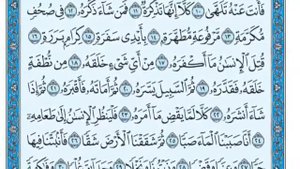 فَأَنتَ عَنْهُ تَلَهَّىٰ ١٠ كَلَّا إِنَّهَا تَذْكِرَةٌ ١١ فَمَن شَاءَ ذَكَرَهُ ١٢ فِي صُحُفٍ
مُّكَرَّمَةٍ ١٣ مَّرْفُوعَةٍ مُّطَهَّرَةٍ ١٤ بِأَيْدِي سَفَرَةٍ ١٥ كِرَامٍ بَرَرَةٍ ١٦
قُتِلَ الْإِنسَانُ مَا أَكْفَرَهُ ١٧ مِنْ أَيِّ شَيْءٍ خَلَقَهُ ١٨ مِن نُّطْفَةٍ
خَلَقَهُ فَقَدَّرَهُ ١٩ ثُمَّ السَّبِيلَ يَسَّرَهُ ٢٠ ثُمَّ أَمَاتَهُ فَأَقْبَرَهُ ٢١ ثُمَّ إِذَا
شَاءَ أَنشَرَهُ ٢٢ كَلَّا لَمَّا يَقْضِ مَا أَمَرَهُ ٢٣ فَلْيَنظُرِ الْإِنسَانُ إِلَىٰ طَعَامِهِ
٢٤ أَنَّا صَبَبْنَا الْمَاءَ صَبًّا ٢٥ ثُمَّ شَقَقْنَا الْأَرْضَ شَقًّا ٢٦ فَأَنبَتْنَا فِيهَا